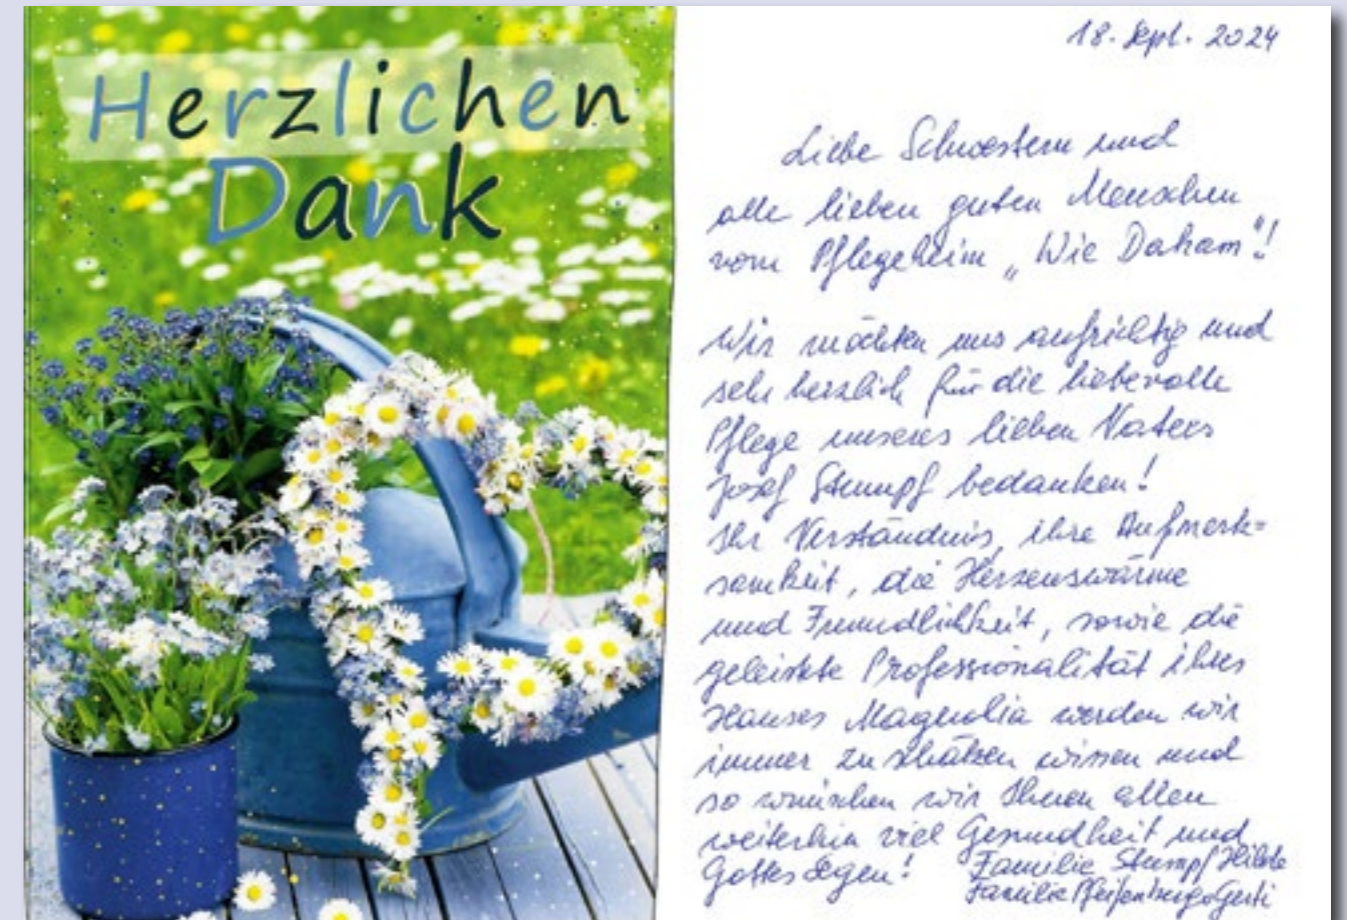 Herzlichen
Dank
18. Sept. 2024
Liebe Schwestern und
alle lieben guten Menschen
vom Pflegeheim „Wie Daham"!
Wir möchten uns aufrichtig und
sehr herzlich für die liebevolle
Pflege unseres lieben Vaters
Josef Stumpf bedanken!
Ihr Verständnis, ihre Aufmerk=
samkeit, die Herzenswärme
und Freundlichkeit, sowie die
geleistete Professionalität ihres
Hauses Magnolia werden wir
immer zu schätzen wissen und
so wünschen wir Ihnen allen
weiterhin viel Gesundheit und
Gottes Segen! Familie Stumpf Hilde
Familie Gerti